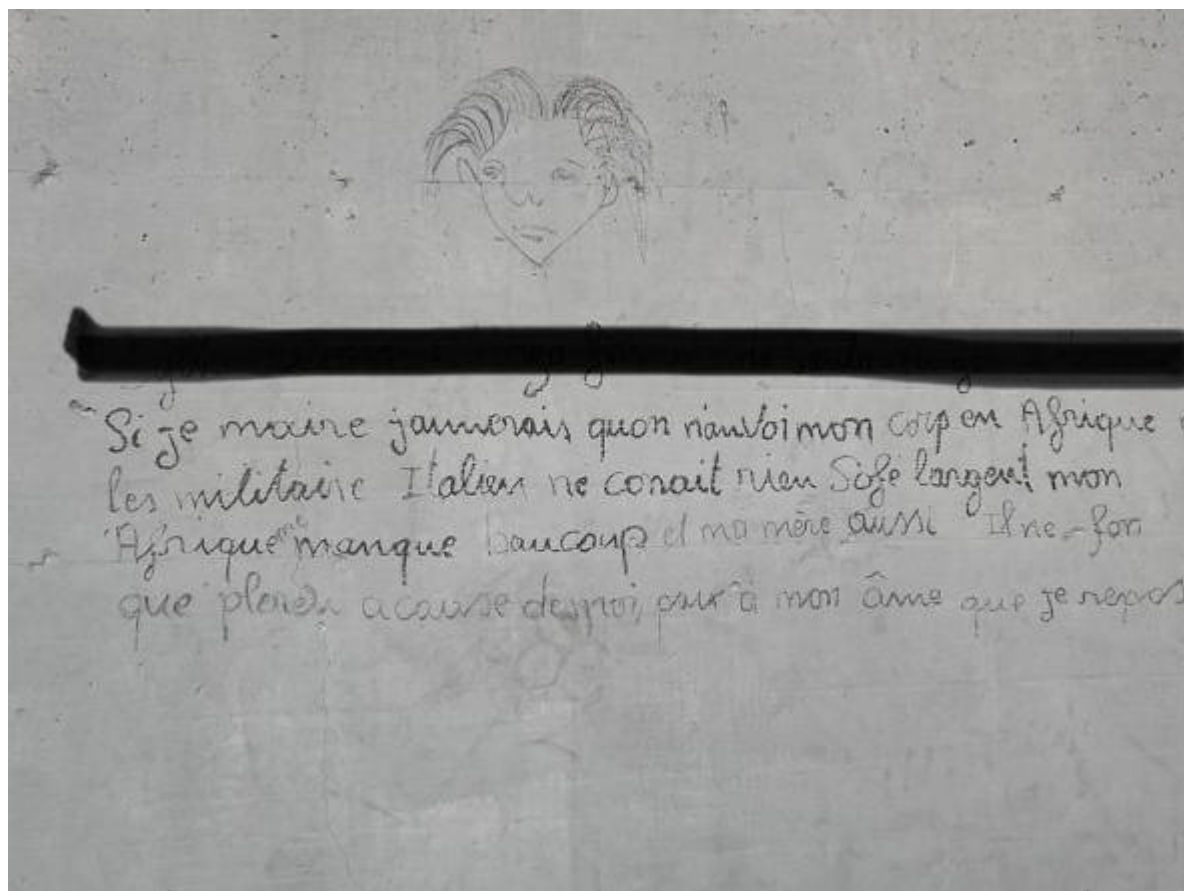 Si je maire jaimerais quon n'anvoi mon corp en Afrique
les militaire Italien ne conait rien Sofé largent mon
Afrique me manque baucoup et ma mère aussi Il ne fon
que a cause de moi à mon âme que je repos